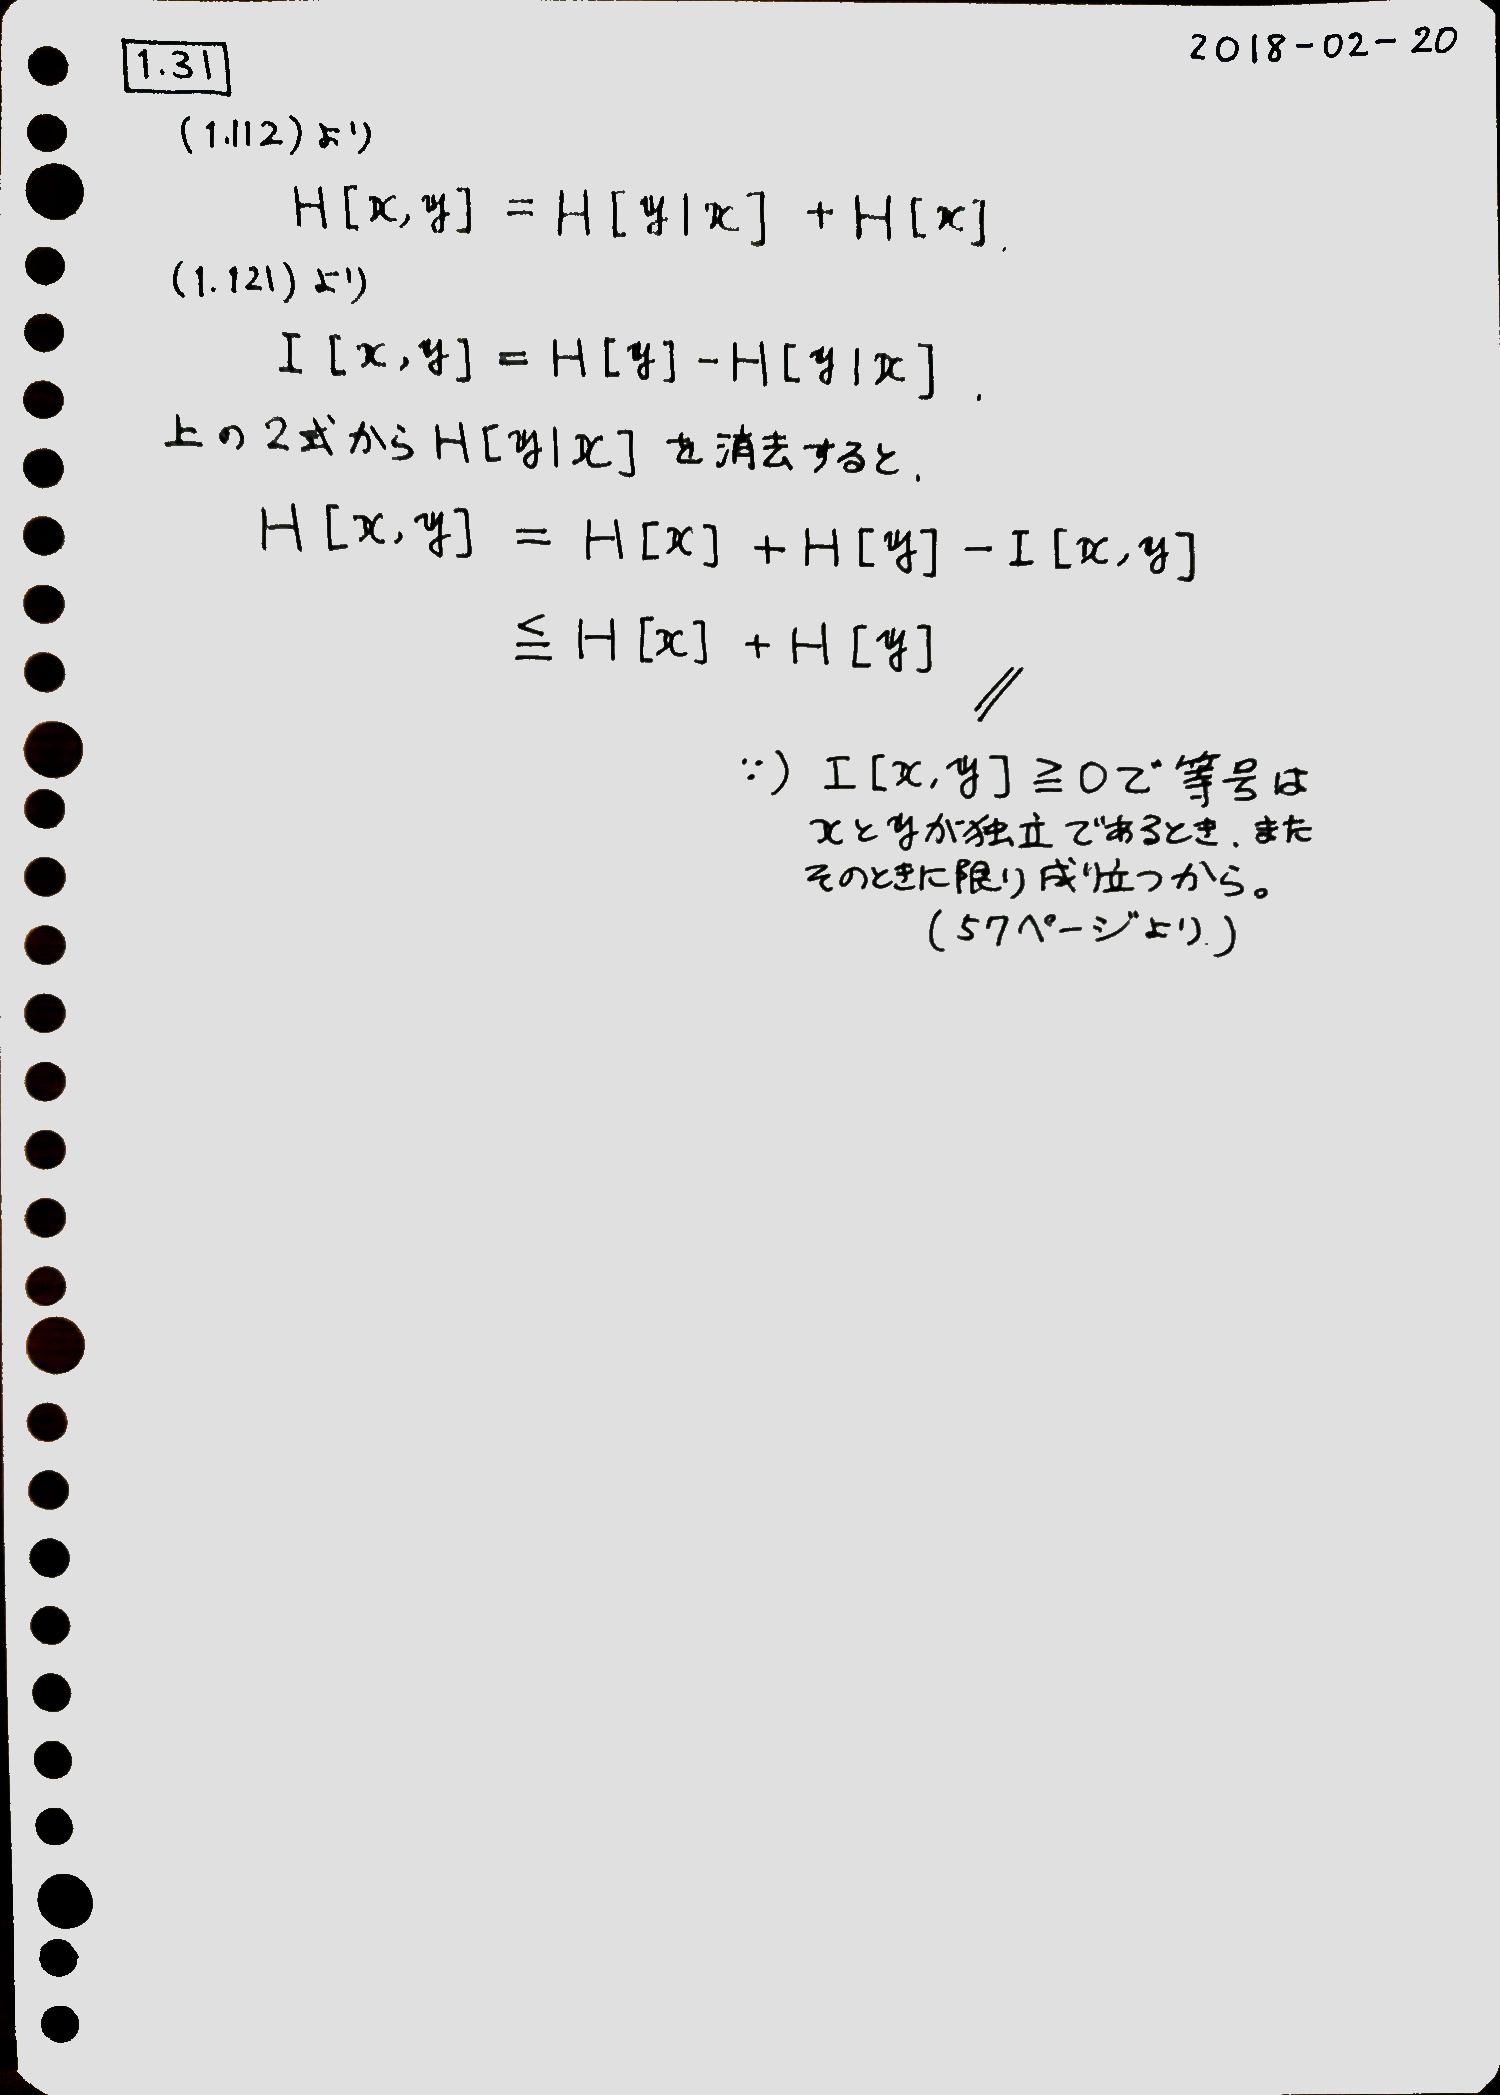 2018-02-20
1.31
(1.112)より
H[x,y] = H[y|x] + H[x].
(1.121)より
I[x,y] = H[y] - H[y|x].
上の2式からH[y|x]を消去すると,
H[x,y] = H[x] + H[y] - I[x,y]
≦ H[x] + H[y]
∵) I[x,y] ≧ 0で等号は
xとyが独立であるとき,また
そのときに限り成り立つから。
(57ページより.)